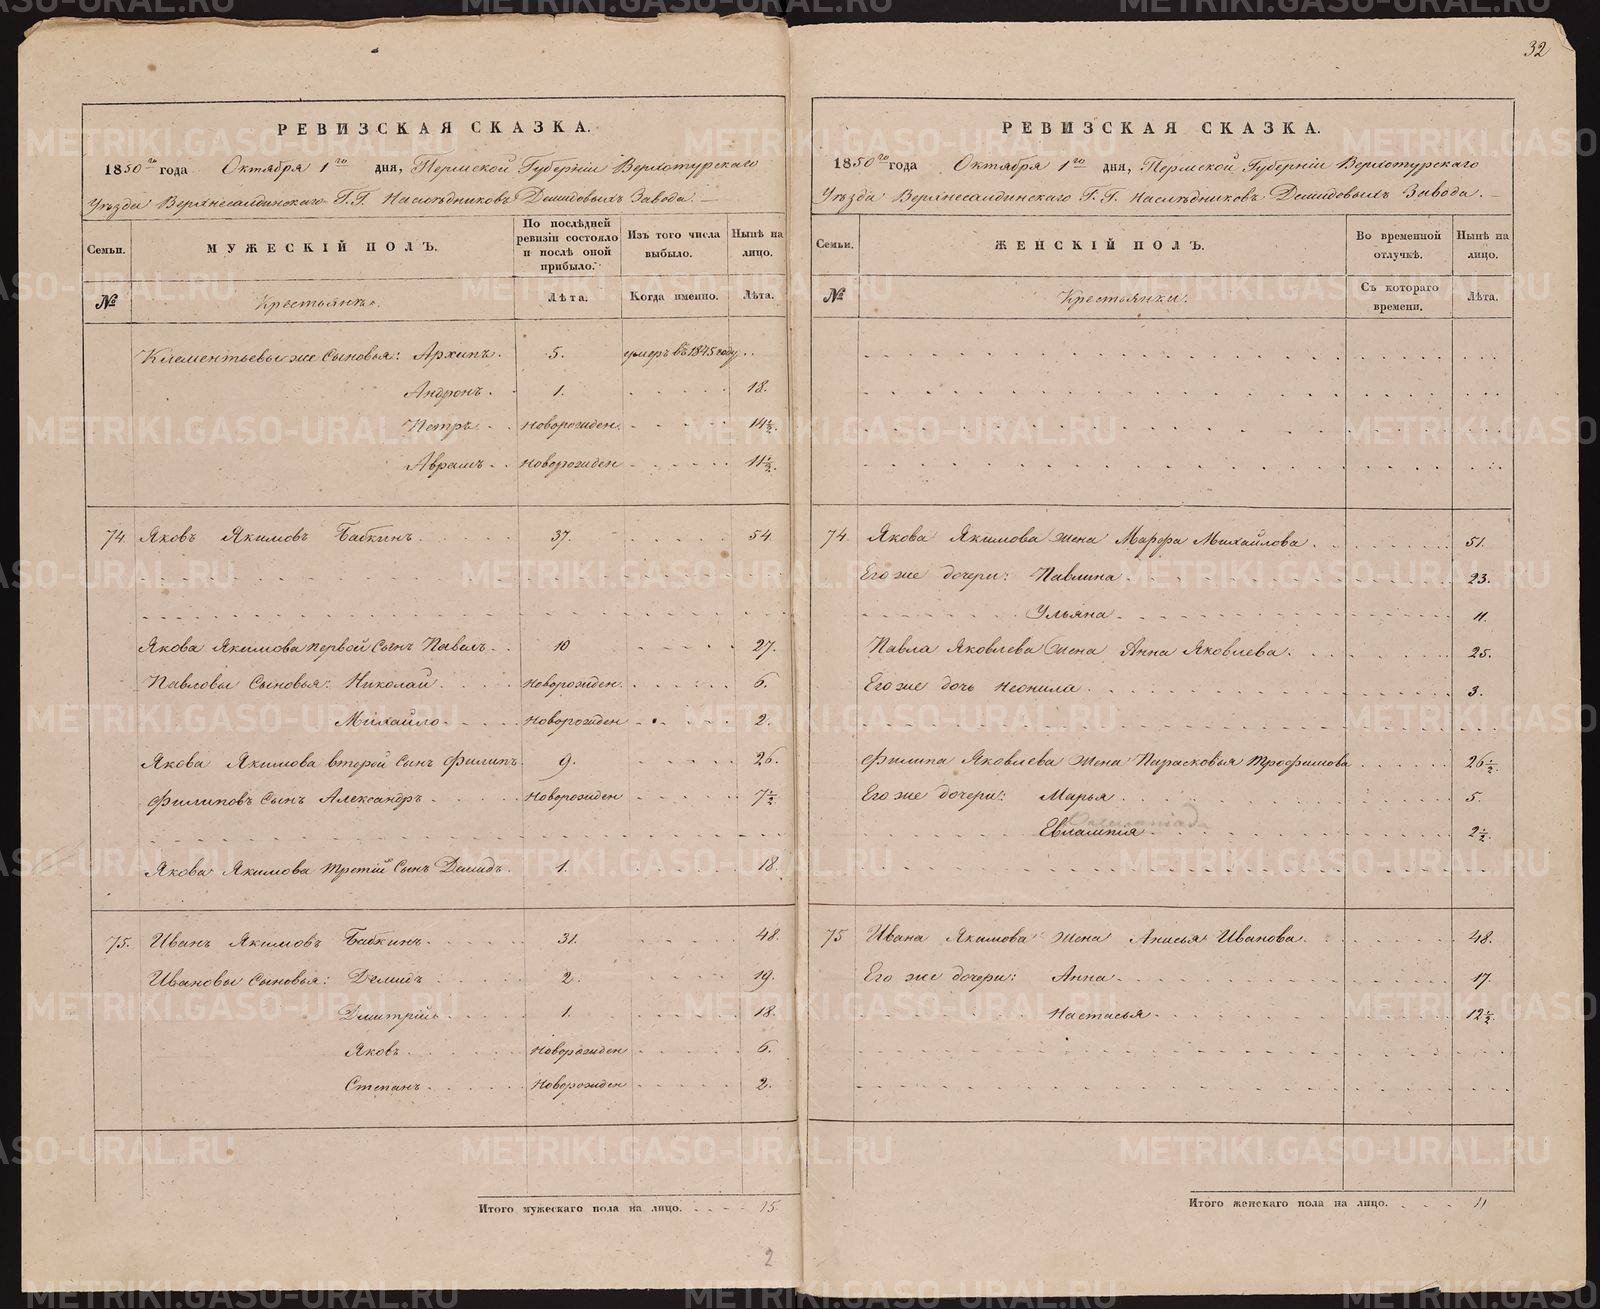 32
РЕВИЗСКАЯ СКАЗКА.
1850го года Октября 1го дня, Пермской Губернiи Верхотурскаго
Уѣзда Верхнесалдинскаго Г.Г. Наслѣдниковъ Демидовыхъ Завода.
Семьи.
МУЖЕСКІЙ ПОЛЪ.
По послѣдней ревизіи состояло и послѣ оной прибыло.
Изъ того числа выбыло.
Нынѣ на лицо.
№
Крестьянъ.
Лѣта.
Когда именно.
Лѣта.
Клементьевы же Сыновья: Архипъ. 5. умеръ въ 1845 году
Андронъ. 1. 18.
Петръ. новорожден. 14½.
Аврамъ. новорожден 11½.
74. Яковъ Якимовъ Бабкинъ. 37. 54.
Якова Якимова первой Сынъ Павелъ. 10 27.
Павловы Сыновья: Николай. новорожден. 6.
Михайло. новорожден 2.
Якова Якимова второй Сынъ Филипъ. 9. 26.
Филиповъ Сынъ Александръ. новорожден 7½
Якова Якимова третiй Сынъ Демидъ. 1. 18.
75. Иванъ Якимовъ Бабкинъ. 31. 48.
Ивановы Сыновья: Демидъ. 2. 19.
Дмитрiй. 1. 18.
Яковъ. новорожден 6.
Степанъ. новорожден 2.
Итого мужескаго пола на лицо. 15.
2
РЕВИЗСКАЯ СКАЗКА.
1850го года Октября 1го дня, Пермской Губернiи Верхотурскаго
Уѣзда Верхнесалдинскаго Г.Г. Наслѣдниковъ Демидовыхъ Завода.
Семьи.
ЖЕНСКІЙ ПОЛЪ.
Во временной отлучкѣ.
Нынѣ на лицо.
№
Крестьянки.
Съ котораго времени.
Лѣта.
74. Якова Якимова жена Марфа Михайлова. 51.
Его же дочери: Павлина. 23.
Ульяна. 11.
Павла Яковлева жена Анна Яковлева. 25.
Его же дочь Неонила. 3.
Филипа Яковлева жена Парасковья Трофимова 26½.
Его же дочери: Марья. 5.
Евлампiя. 2½.
75 Ивана Якимова жена Анисья Иванова. 48.
Его же дочери: Анна. 17.
Настасья. 12½.
Итого женскаго пола на лицо. 11
METRIKI.GASO-URAL.RU